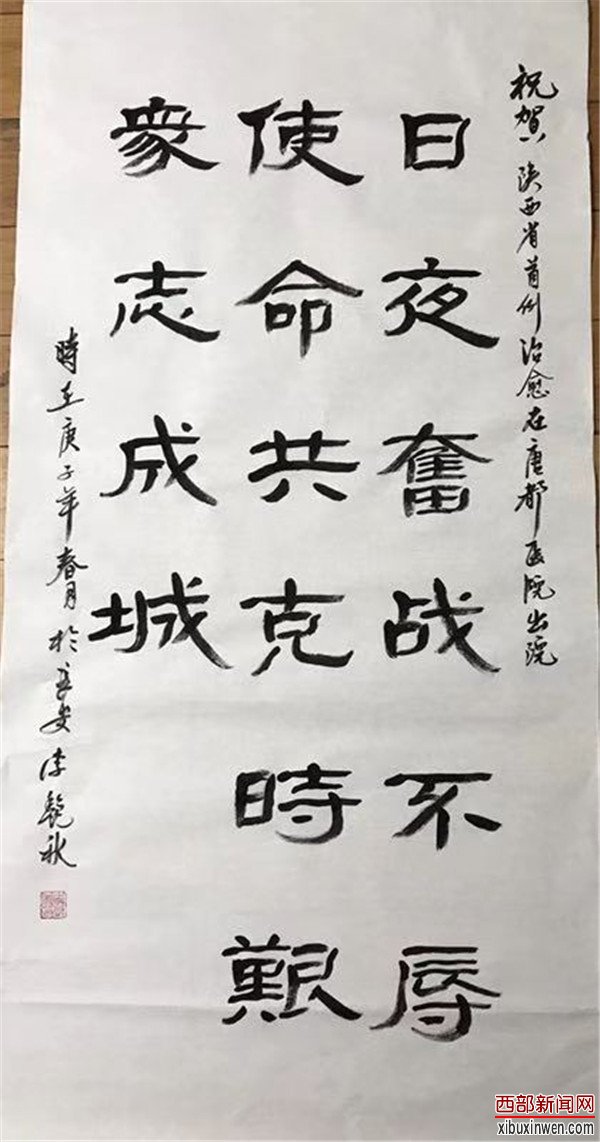 祝贺陕西省首例治愈在唐都医院出院
日夜奮战不辱
使命共克時艱
衆志成城
時在庚子年春月於长安李艳秋
西部新闻网
xibuxinwen.com